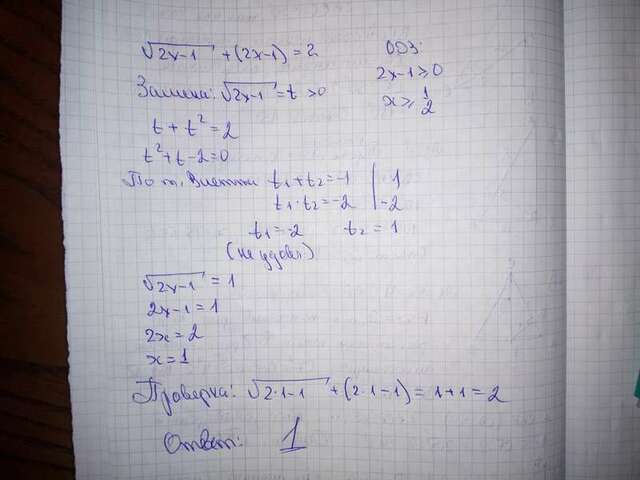 √2x-1 + (2x-1) = 2
ОДЗ:
2x-1 ≥ 0
x ≥ 1/2
Замена: √2x-1 = t > 0
t + t² = 2
t² + t - 2 = 0
По т. Виетта t₁ + t₂ = -1 | 1
t₁ · t₂ = -2 | -2
t₁ = -2 t₂ = 1
(не удовл.)
√2x-1 = 1
2x-1 = 1
2x = 2
x = 1
Проверка: √2·1-1 + (2·1-1) = 1+1 = 2
Ответ: 1